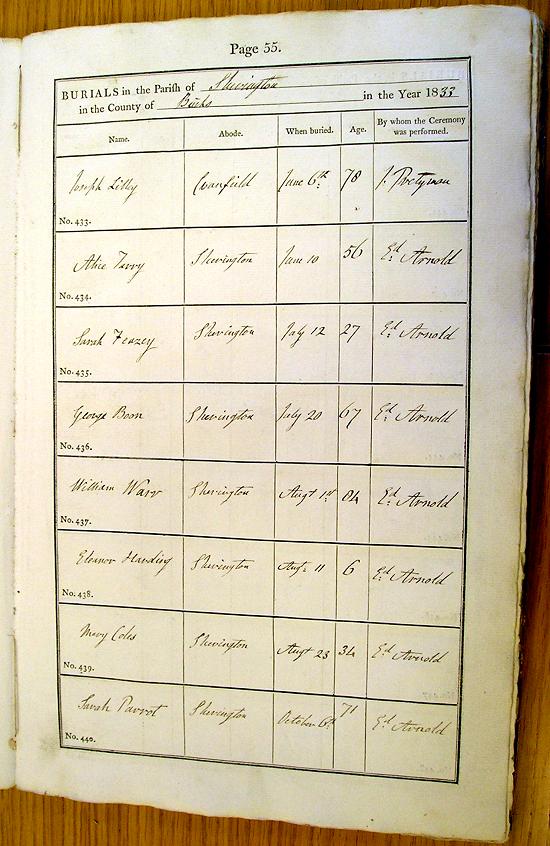 Page 55.
BURIALS in the Parish of Sherington
in the County of Bucks in the Year 1833
Name. Abode. When buried. Age. By whom the Ceremony was performed.
Joseph Lilly Cranfield June 6th 78 J. Pretyman
No. 433.
Alice Terry Sherington June 10 56 Ed Arnold
No. 434.
Sarah Feazey Sherington July 12 27 Ed Arnold
No. 435.
George Boon Sherington July 20 67 Ed Arnold
No. 436.
William Warr Sherington Augt 1st 84 Ed Arnold
No. 437.
Eleanor Harding Sherington Augt 11 6 Ed Arnold
No. 438.
Mary Coles Sherington Augt 23 34 Ed Arnold
No. 439.
Sarah Parrot Sherington October 6th 71 Ed Arnold
No. 440.